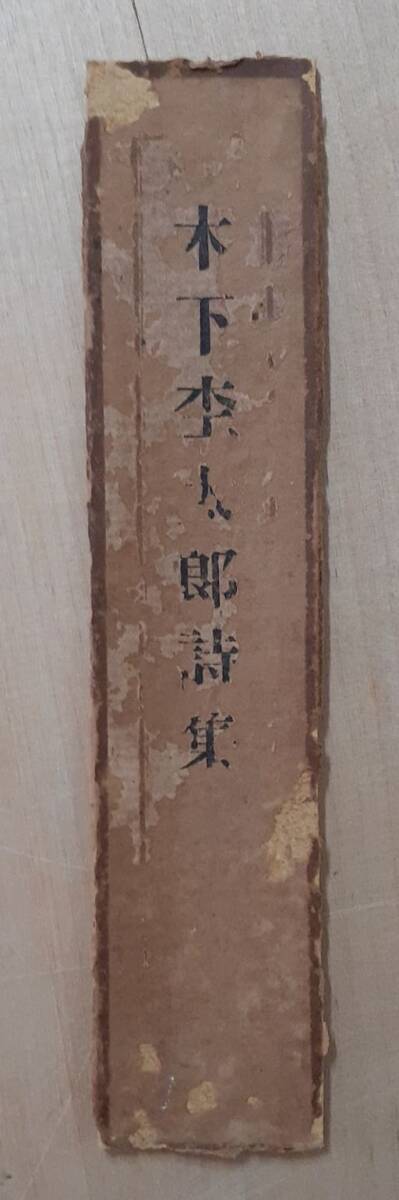 木下杢太郎詩集